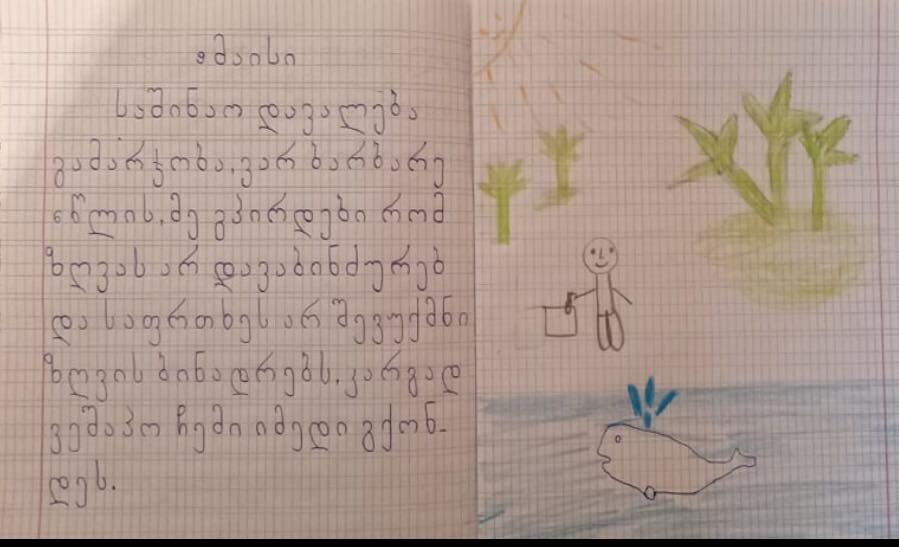 9 მაისი
საშინაო დავალება
გამარჯობა, ვარ ბარბარე
6 წლის, მე გპირდები რომ
ზღვას არ დავაბინძურებ
და საფრთხეს არ შევუქმნი
ზღვის ბინადრებს, კარგად
ვეშაპო ჩემი იმედი გქონ-
დეს.